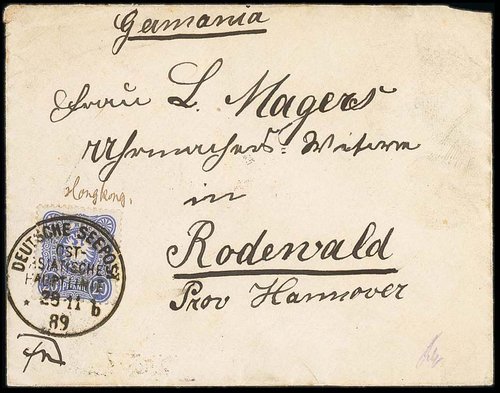 Germania
Frau L. Magers
Uhrmachers-Witwe
in
Rodewald
Prov Hannover
Hongkong.
DEUTSCHE SEEPOST
OST-
ASIATISCHE
HAUPTLINIE
* 25 11 b
89